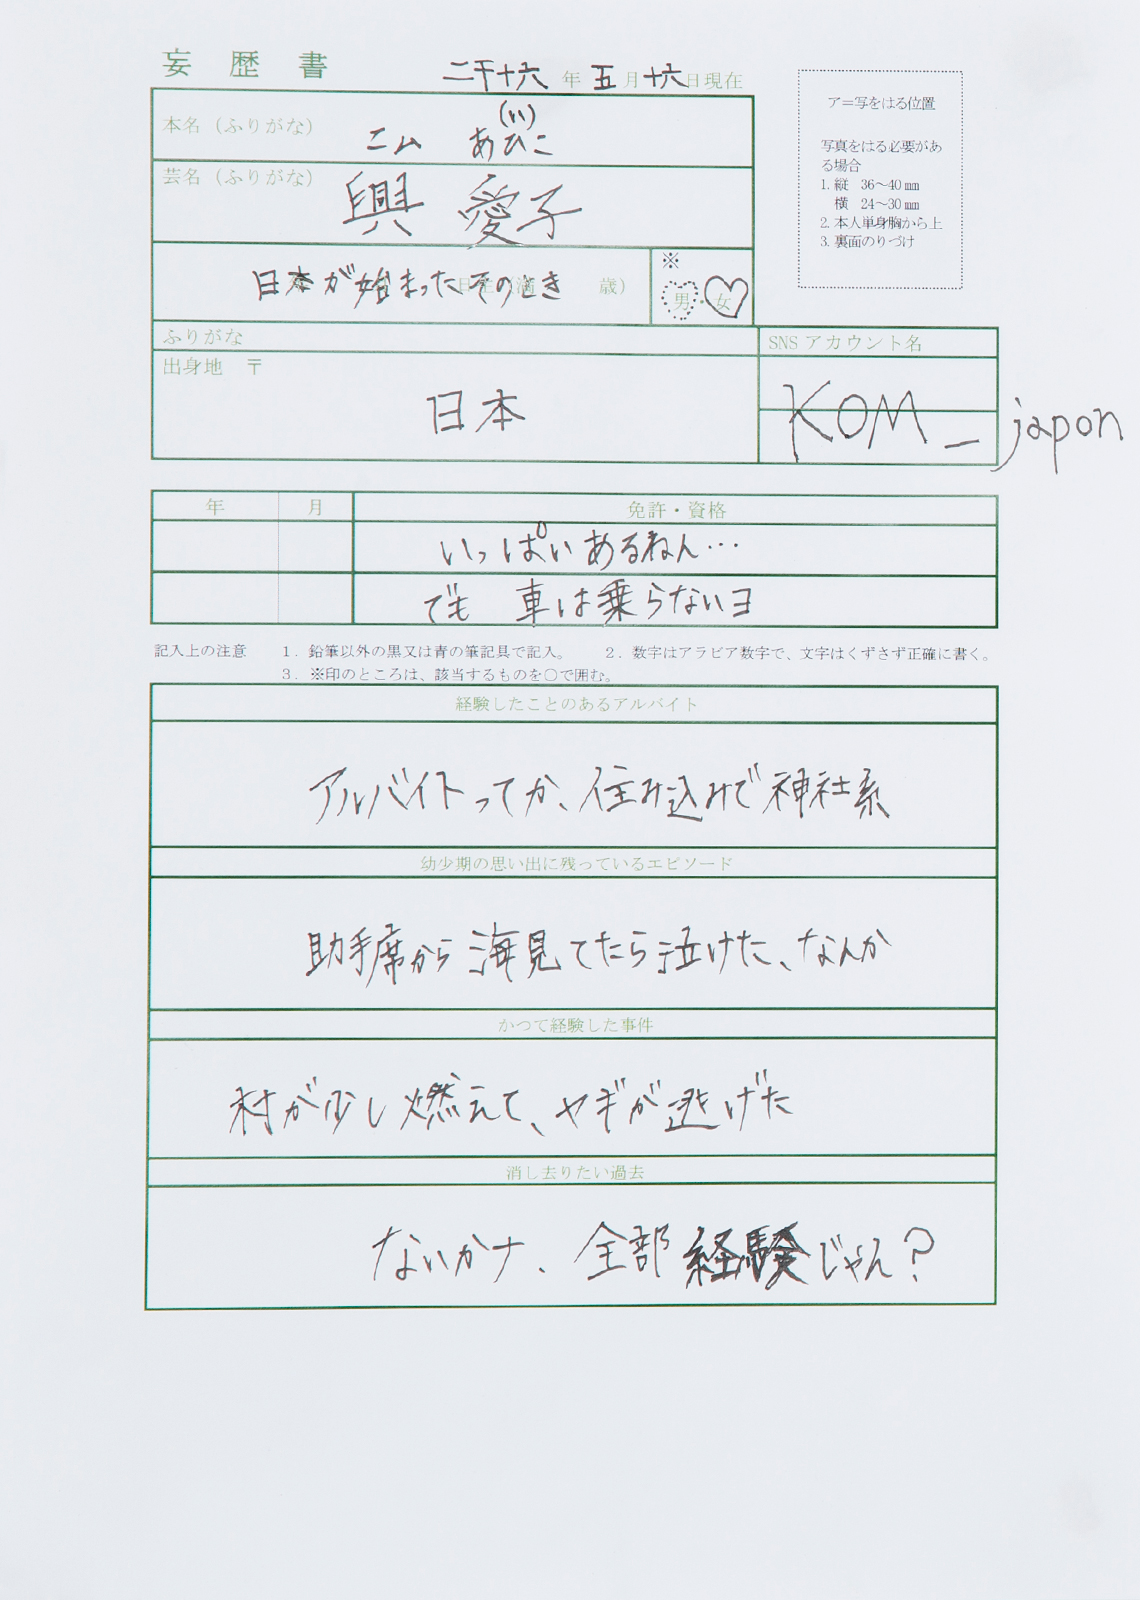 妄歴書
二千十六年五月十六日現在
本名（ふりがな）
(い)
ニム あひこ
芸名（ふりがな）
興 愛子
日本が始まったそのとき
日生（満 歳）
※
男・女
ア＝写をはる位置
写真をはる必要があ
る場合
1. 縦 36～40 ㎜
横 24～30 ㎜
2. 本人単身胸から上
3. 裏面のりづけ
ふりがな
SNS アカウント名
出身地 〒
日本
KOM_japon
年 月 免許・資格
いっぱいあるねん…
でも 車は乗らないヨ
記入上の注意 １．鉛筆以外の黒又は青の筆記具で記入。 ２．数字はアラビア数字で、文字はくずさず正確に書く。
３．※印のところは、該当するものを○で囲む。
経験したことのあるアルバイト
アルバイトってか、住み込みで神社系
幼少期の思い出に残っているエピソード
助手席から海見てたら泣けた、なんか
かつて経験した事件
村が少し燃えて、ヤギが逃げた
消し去りたい過去
ないかナ、全部経験じゃん？